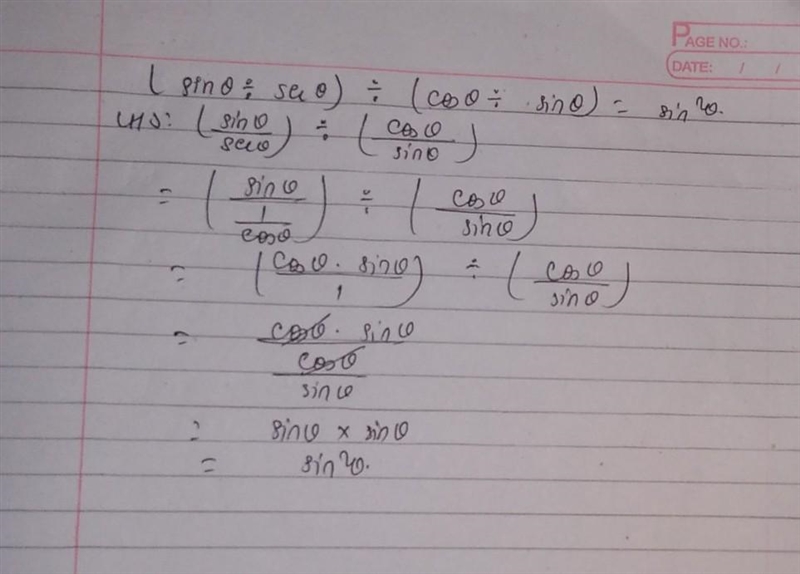 PAGE NO.:
DATE: / /
( sinθ ÷ secθ ) ÷ ( cosθ ÷ sinθ ) = sin²θ.
LHS: ( sinθ / secθ ) ÷ ( cosθ / sinθ )
= ( sinθ / ( 1 / cosθ ) ) ÷ ( cosθ / sinθ )
= ( cosθ . sinθ / 1 ) ÷ ( cosθ / sinθ )
= cosθ . sinθ / ( cosθ / sinθ )
= sinθ × sinθ
= sin²θ.